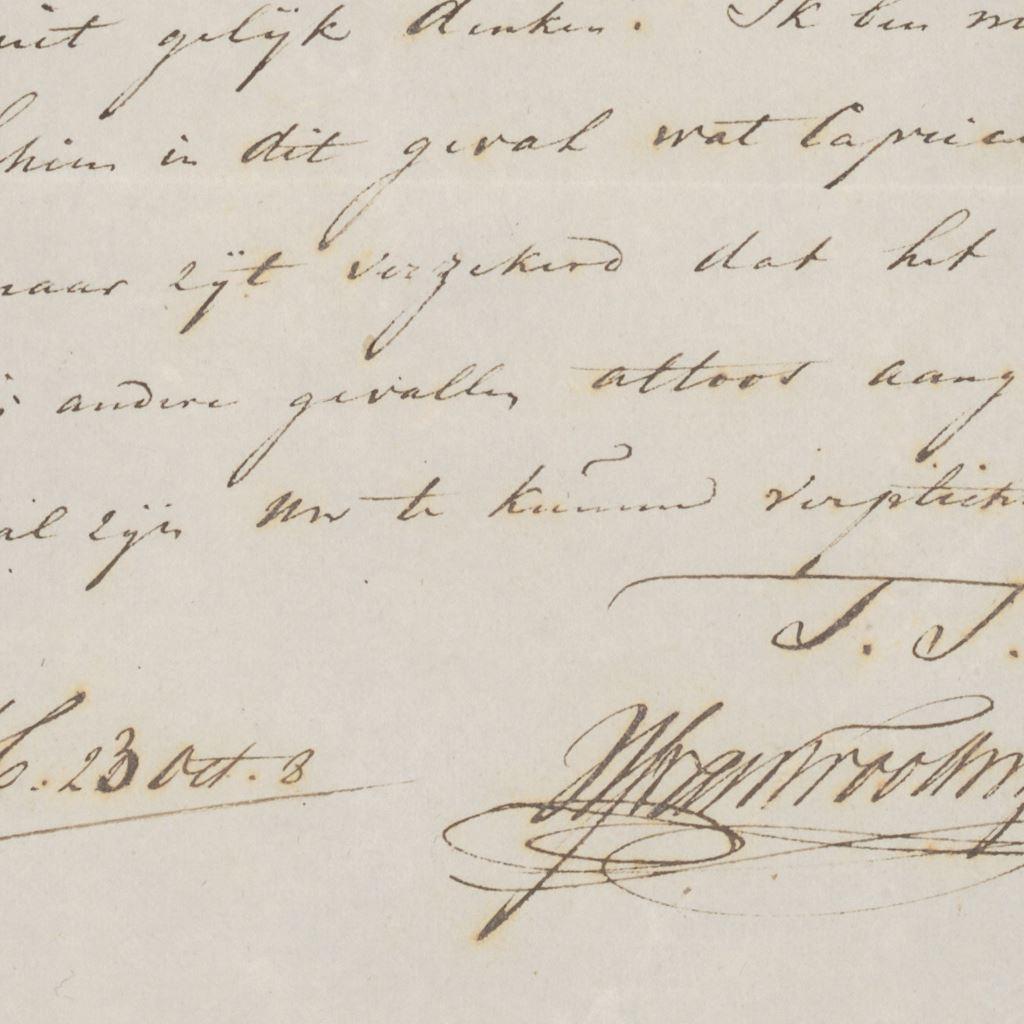 niet gelijk denken. Ik ben m
hien in dit geval wat Capric
maar zijt verzekerd dat het
andere gevallen altoos aang
zal zijn UW te kunnen verplicht
T. T.
23 Oct. 8